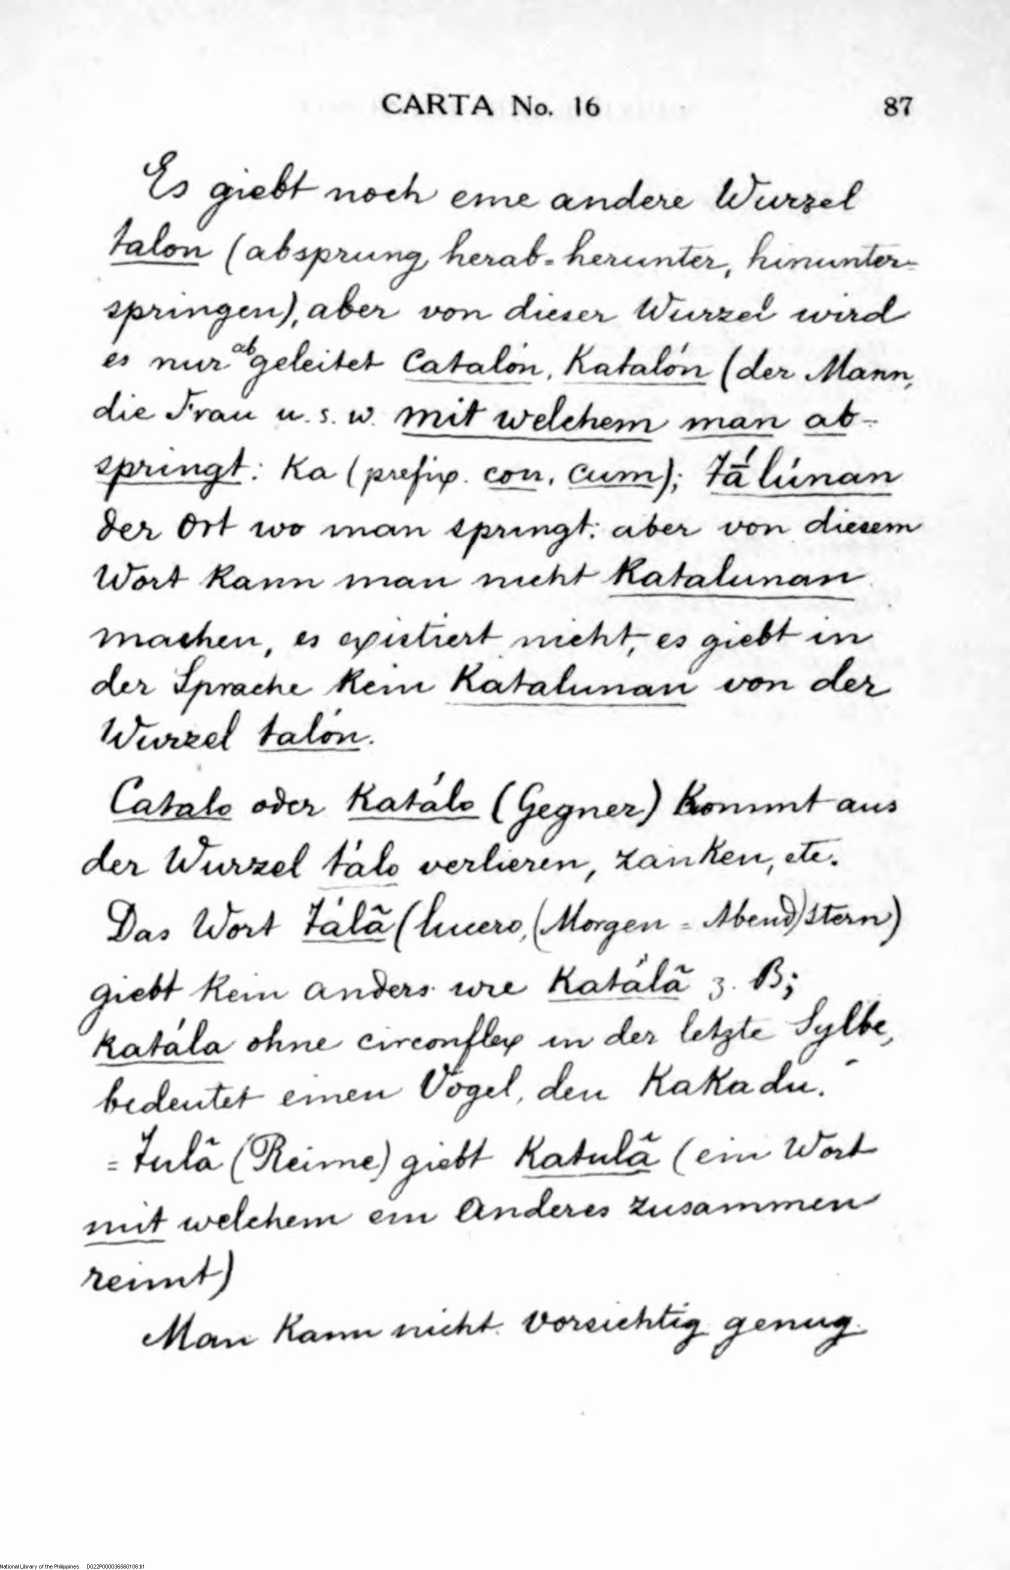 CARTA No. 16 87
Es giebt noch eine andere Wurzel
talon (absprung, herab=herunter, hinunter=
springen), aber von dieser Wurzel wird
es nur abgeleitet Catalón, Katalón (der Mann,
die Frau u. s. w. mit welchem man ab=
springt: Ka (prefix. con, cum); Tālúnan
der Ort wo man springt: aber von diesem
Wort kann man nicht Katalunan
machen, es existiert nicht, es giebt in
der Sprache kein Katalunan von der
Wurzel talón.
Catalo oder Katálo (Gegner) kommt aus
der Wurzel tálo verlieren, zanken, etc.
Das Wort Tálã (lucero, (Morgen = Abend) stern)
giebt kein anders wie Katálã z. B;
katála ohne circonflex in der letzte Sylbe,
bedeutet einen Vogel, den KaKadu.
= Tulã (Reime) giebt Katulã (ein Wort
mit welchem ein Anderes zusammen
reimt)
Man kann nicht vorsichtig genug
National Library of the Philippines